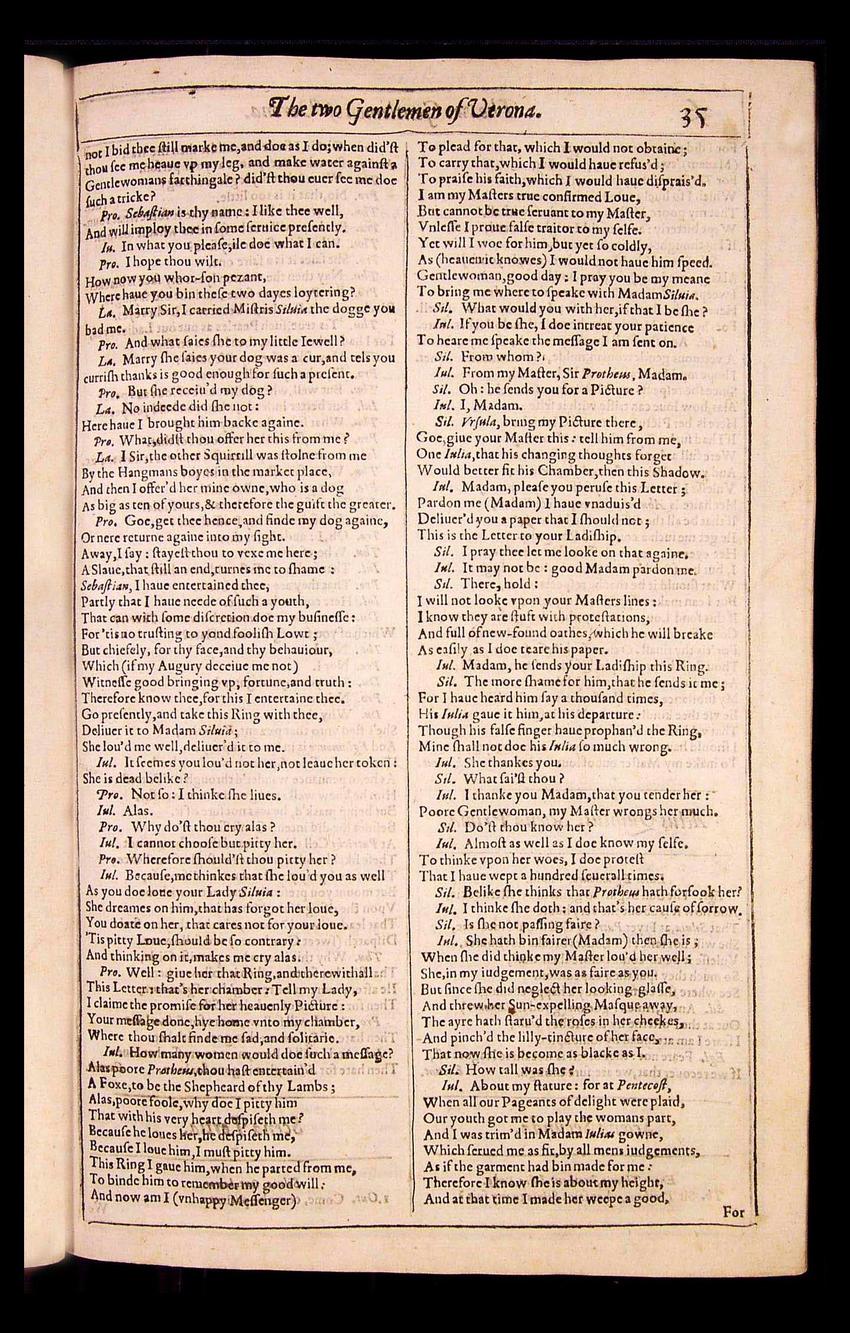 The two Gentlemen of Verona.
35
not I bid thee ſtill marke me, and doe as I do; when did'ſt
thou ſee me heaue vp my leg, and make water againſt a
Gentlewomans farthingale? did'ſt thou euer ſee me doe
ſuch a tricke?
Pro. Sebaſtian is thy name: I like thee well,
And will imploy thee in ſome ſeruice preſently.
Iu. In what you pleaſe, ile doe what I can.
Pro. I hope thou wilt.
How now you whor-ſon pezant,
Where haue you bin theſe two dayes loytering?
La. Marry Sir, I carried Miſtris Siluia the dogge you
bad me.
Pro. And what ſaies ſhe to my little Iewell?
La. Marry ſhe ſaies your dog was a cur, and tels you
curriſh thanks is good enough for ſuch a preſent.
Pro. But ſhe receiu'd my dog?
La. No indeede did ſhe not:
Here haue I brought him backe againe.
Pro. What, didſt thou offer her this from me?
La. I Sir, the other Squirrill was ſtolne from me
By the Hangmans boyes in the market place,
And then I offer'd her mine owne, who is a dog
As big as ten of yours, & therefore the guift the greater.
Pro. Goe, get thee hence, and finde my dog againe,
Or nere returne againe into my ſight.
Away, I ſay: ſtayeſt thou to vexe me here;
A Slaue, that ſtill an end, turnes me to ſhame:
Sebaſtian, I haue entertained thee,
Partly that I haue neede of ſuch a youth,
That can with ſome diſcretion doe my buſineſſe:
For 'tis no truſting to yond fooliſh Lowt;
But chiefely, for thy face, and thy behauiour,
Which (if my Augury deceiue me not)
Witneſſe good bringing vp, fortune, and truth:
Therefore know thee, for this I entertaine thee.
Go preſently, and take this Ring with thee,
Deliuer it to Madam Siluia;
She lou'd me well, deliuer'd it to me.
Iul. It ſeemes you lou'd not her, not leaue her token:
She is dead belike?
Pro. Not ſo: I thinke ſhe liues.
Iul. Alas.
Pro. Why do'ſt thou cry alas?
Iul. I cannot chooſe but pitty her.
Pro. Wherefore ſhould'ſt thou pitty her?
Iul. Becauſe, me thinkes that ſhe lou'd you as well
As you doe loue your Lady Siluia:
She dreames on him, that has forgot her loue,
You doate on her, that cares not for your loue.
'Tis pitty Loue, ſhould be ſo contrary:
And thinking on it, makes me cry alas.
Pro. Well: giue her that Ring, and therewithall
This Letter: that's her chamber: Tell my Lady,
I claime the promiſe for her heauenly Picture:
Your meſſage done, hye home vnto my chamber,
Where thou ſhalt finde me ſad, and ſolitarie.
Iul. How many women would doe ſuch a meſſage?
Alas poore Protheus, thou haſt entertain'd
A Foxe, to be the Shepheard of thy Lambs;
Alas, poore foole, why doe I pitty him
That with his very heart deſpiſeth me?
Becauſe he loues her, he deſpiſeth me,
Becauſe I loue him, I muſt pitty him.
This Ring I gaue him, when he parted from me,
To binde him to remember my good will:
And now am I (vnhappy Meſſenger)
To plead for that, which I would not obtaine;
To carry that, which I would haue refus'd;
To praiſe his faith, which I would haue diſprais'd.
I am my Maſters true confirmed Loue,
But cannot be true ſeruant to my Maſter,
Vnleſſe I proue falſe traitor to my ſelfe.
Yet will I woe for him, but yet ſo coldly,
As (heauen it knowes) I would not haue him ſpeed.
Gentlewoman, good day: I pray you be my meane
To bring me where to ſpeake with Madam Siluia.
Sil. What would you with her, if that I be ſhe?
Iul. If you be ſhe, I doe intreat your patience
To heare me ſpeake the meſſage I am ſent on.
Sil. From whom?
Iul. From my Maſter, Sir Protheus, Madam.
Sil. Oh: he ſends you for a Picture?
Iul. I, Madam.
Sil. Vrſula, bring my Picture there,
Goe, giue your Maſter this: tell him from me,
One Iulia, that his changing thoughts forget
Would better fit his Chamber, then this Shadow.
Iul. Madam, pleaſe you peruſe this Letter;
Pardon me (Madam) I haue vnaduis'd
Deliuer'd you a paper that I ſhould not;
This is the Letter to your Ladiſhip.
Sil. I pray thee let me looke on that againe.
Iul. It may not be: good Madam pardon me.
Sil. There, hold:
I will not looke vpon your Maſters lines:
I know they are ſtuft with proteſtations,
And full of new-found oathes, which he will breake
As eaſily as I doe teare his paper.
Iul. Madam, he ſends your Ladiſhip this Ring.
Sil. The more ſhame for him, that he ſends it me;
For I haue heard him ſay a thouſand times,
His Iulia gaue it him, at his departure:
Though his falſe finger haue prophan'd the Ring,
Mine ſhall not doe his Iulia ſo much wrong.
Iul. She thankes you.
Sil. What ſai'ſt thou?
Iul. I thanke you Madam, that you tender her:
Poore Gentlewoman, my Maſter wrongs her much.
Sil. Do'ſt thou know her?
Iul. Almoſt as well as I doe know my ſelfe.
To thinke vpon her woes, I doe proteſt
That I haue wept a hundred ſeuerall times.
Sil. Belike ſhe thinks that Protheus hath forſook her?
Iul. I thinke ſhe doth: and that's her cauſe of ſorrow.
Sil. Is ſhe not paſſing faire?
Iul. She hath bin fairer (Madam) then ſhe is;
When ſhe did thinke my Maſter lou'd her well;
She, in my iudgement, was as faire as you.
But ſince ſhe did neglect her looking-glaſſe,
And threw her Sun-expelling Maſque away,
The ayre hath ſtaru'd the roſes in her cheekes,
And pinch'd the lilly-tincture of her face,
That now ſhe is become as blacke as I.
Sil. How tall was ſhe?
Iul. About my ſtature: for at Pentecoſt,
When all our Pageants of delight were plaid,
Our youth got me to play the womans part,
And I was trim'd in Madam Iulias gowne,
Which ſerued me as fit, by all mens iudgements,
As if the garment had bin made for me:
Therefore I know ſhe is about my height,
And at that time I made her weepe a good,
For